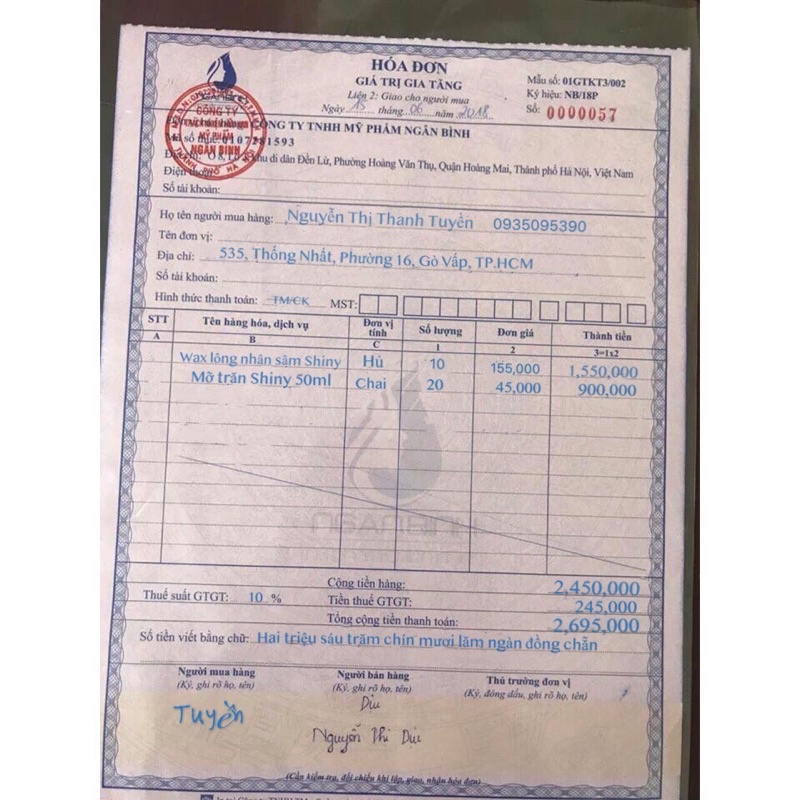 HÓA ĐƠN
GIÁ TRỊ GIA TĂNG
Liên 2: Giao cho người mua
Ngày 15 tháng 06 năm 2018
Mẫu số: 01GTKT3/002
Ký hiệu: NB/18P
Số: 0000057
CÔNG TY
MỸ PHẨM
NGÂN BÌNH
CÔNG TY TNHH MỸ PHẨM NGÂN BÌNH
Mã số thuế: 0107281593
Địa chỉ: Ô 8, Lô 2, khu di dân Đền Lừ, Phường Hoàng Văn Thụ, Quận Hoàng Mai, Thành phố Hà Nội, Việt Nam
Điện thoại:
Số tài khoản:
Họ tên người mua hàng: Nguyễn Thị Thanh Tuyền 0935095390
Tên đơn vị:
Địa chỉ: 535, Thống Nhất, Phường 16, Gò Vấp, TP.HCM
Số tài khoản:
Hình thức thanh toán: TM/CK MST:
STT Tên hàng hóa, dịch vụ Đơn vị tính Số lượng Đơn giá Thành tiền
A B C 1 2 3=1x2
Wax lông nhân sâm Shiny Hủ 10 155,000 1,550,000
Mỡ trăn Shiny 50ml Chai 20 45,000 900,000
NGANBINH
Cộng tiền hàng: 2,450,000
Thuế suất GTGT: 10 % Tiền thuế GTGT: 245,000
Tổng cộng tiền thanh toán: 2,695,000
Số tiền viết bằng chữ: Hai triệu sáu trăm chín mươi lăm ngàn đồng chẵn
Người mua hàng Người bán hàng Thủ trưởng đơn vị
(Ký, ghi rõ họ, tên) (Ký, ghi rõ họ, tên) (Ký, đóng dấu, ghi rõ họ, tên)
Tuyền Dịu
Nguyễn Thị Dịu
(Cần kiểm tra, đối chiếu khi lập, giao, nhận hóa đơn)